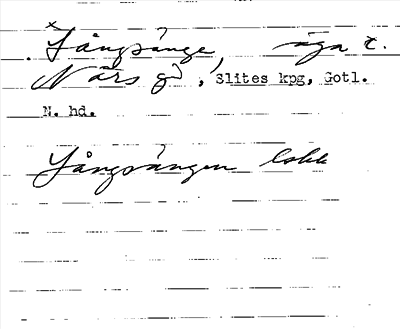 Långsänge, äga t.
Närs gd, Slites kpg, Gotl.
N. hd.
Långsängen Lokk